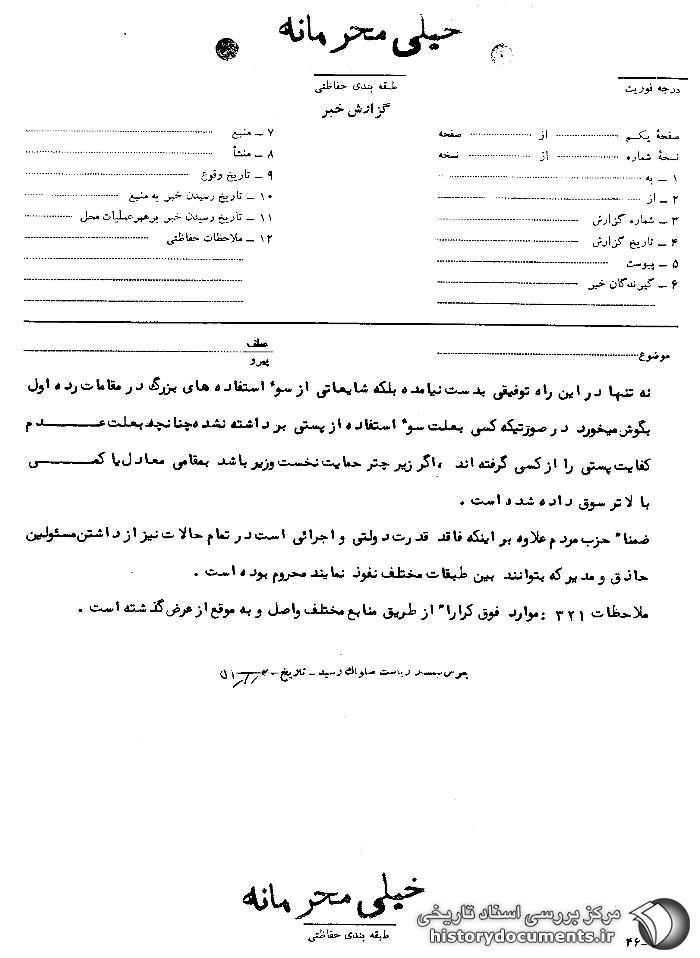 خیلی محرمانه
طبقه بندی حفاظتی
درجه فوریت
گزارش خبر
صفحهٔ یکم ............ از ............ صفحه
نسخهٔ شماره ............ از ............ نسخه
۱ ـ به
۲ ـ از
۳ ـ شماره گزارش
۴ ـ تاریخ گزارش
۵ ـ پیوست
۶ ـ گیرندگان خبر
۷ ـ منبع
۸ ـ منشأ
۹ ـ تاریخ وقوع
۱۰ ـ تاریخ رسیدن خبر به منبع
۱۱ ـ تاریخ رسیدن خبر برهبر عملیات محل
۱۲ ـ ملاحظات حفاظتی
موضوع
عطف
پیرو
نه تنها در این راه توفیقی بدست نیامده بلکه شایعاتی از سوء استفاده های بزرگ در مقامات رده اول
بگوش میخورد در صورتیکه کسی بعلت سوء استفاده از پستی برداشته نشده چنانچه بعلت عـــدم
کفایت پستی را از کسی گرفته اند ، اگر زیر چتر حمایت نخست وزیر باشد بمقامی معادل یا کمـــی
بالاتر سوق داده شده است .
ضمناً حزب مردم علاوه بر اینکه فاقد قدرت دولتی و اجرائی است در تمام حالات نیز از داشتن مسئولین
حاذق و مدیر که بتوانند بین طبقات مختلف نفوذ نمایند محروم بوده است .
ملاحظات ۳۲۱ : موارد فوق کراراً از طریق منابع مختلف واصل و به موقع از عرض گذشته است .
ریاست ساواک رسید ـ تاریخ
خیلی محرمانه
طبقه بندی حفاظتی
مرکز بررسی اسناد تاریخی
historydocuments.ir
۴۶